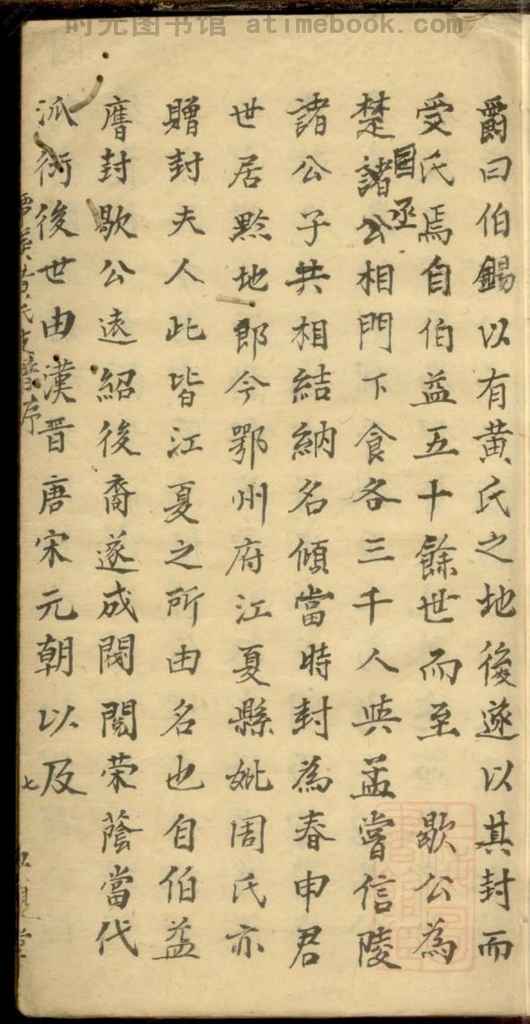 时光图书馆 atimebook.com
爵曰伯錫以有黄氏之地後遂以其封而
受氏焉自伯益五十餘世而至 歇公為
楚諸公相門下食各三千人與孟嘗信陵
國丞
諸公子共相結納名傾當時封為春申君
世居黔地郎今鄂州府江夏縣妣周氏亦
贈封夫人此皆江夏之所由名也自伯益
膺封歇公遠紹後裔遂成閥閱荣蔭當代
派衍後世由漢晋唐宋元朝以及
氏支譜序
七
堂